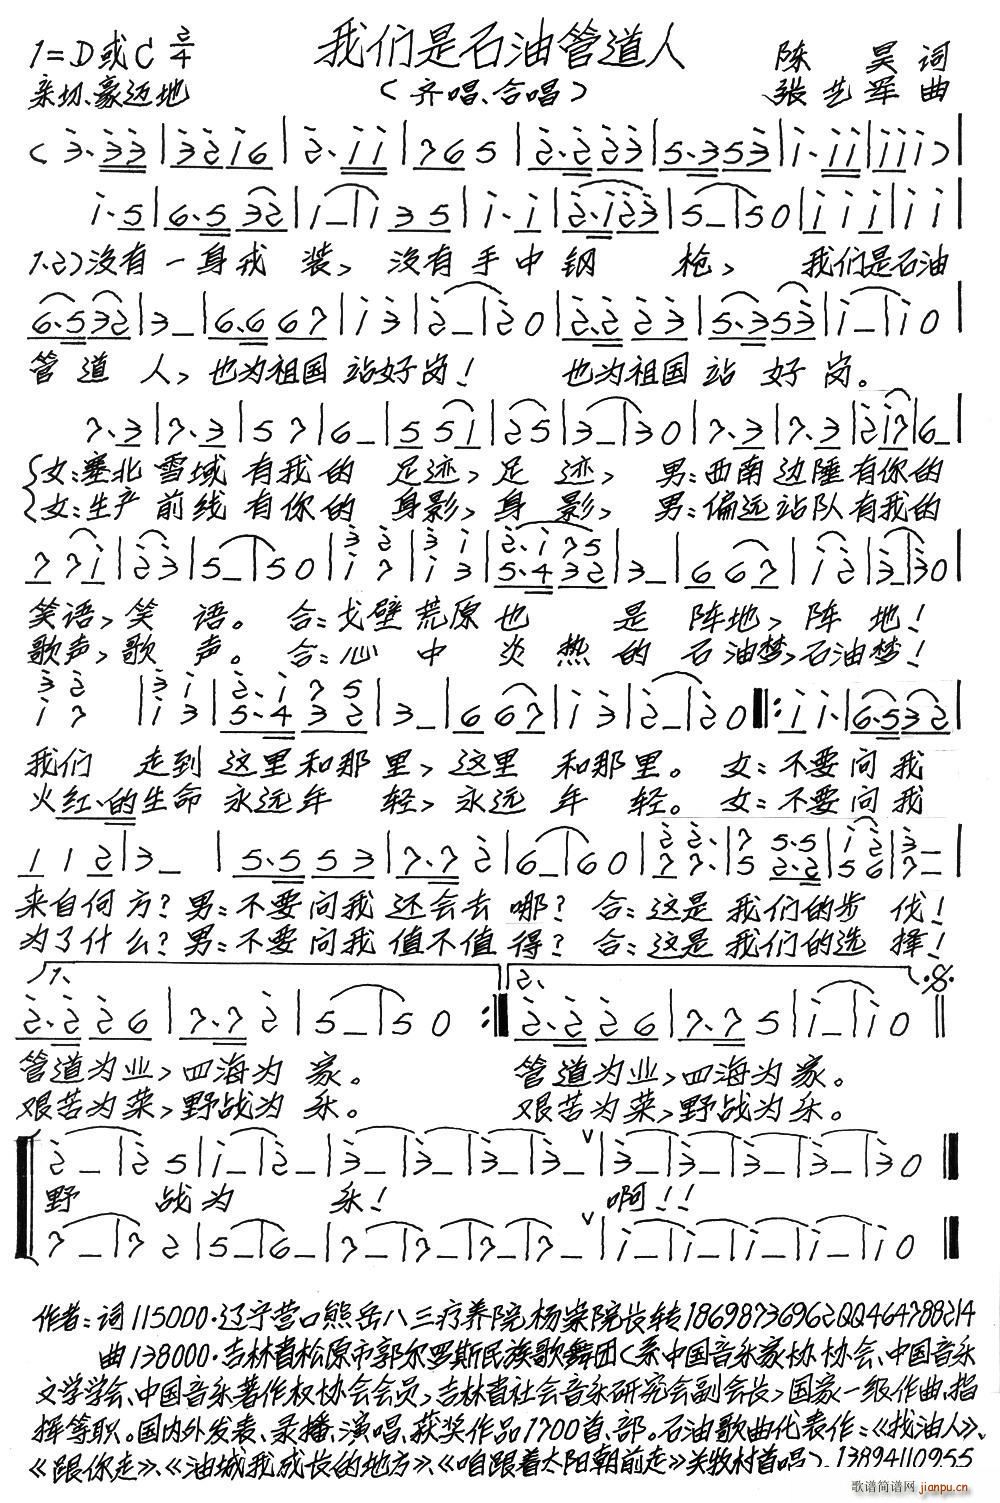 我们是石油管道人
1=D或C 2/4
陈昊词
亲切、豪迈地
（齐唱、合唱）
张艺军曲
1.2）没有一身戎装，没有手中钢枪，我们是石油
管道人，也为祖国站好岗！也为祖国站好岗。
女：塞北雪域有我的足迹，足迹，男：西南边陲有你的
女：生产前线有你的身影，身影，男：偏远站队有我的
笑语，笑语。合：戈壁荒原也是阵地，阵地！
歌声，歌声。合：心中炎热的石油梦，石油梦！
我们走到这里和那里，这里和那里。女：不要问我
火红的生命永远年轻，永远年轻。女：不要问我
来自何方？男：不要问我还会去哪？合：这是我们的步伐！
为了什么？男：不要问我值不值得？合：这是我们的选择！
1. 2.
管道为业，四海为家。管道为业，四海为家。
艰苦为荣，野战为乐。艰苦为荣，野战为乐。
野战为乐！啊！！
作者：词115000·辽宁营口熊岳八三疗养院杨案院长转18698736962QQ464788214
曲138000·吉林省松原市郭尔罗斯民族歌舞团（系中国音乐家协协会、中国音乐
文学学会、中国音乐著作权协会会员，吉林省社会音乐研究会副会长，国家一级作曲、指
挥等职。国内外发表、录播、演唱、获奖作品1700首、部。石油歌曲代表作：《找油人》、
《跟你走》、《油城我成长的地方》、《咱跟着太阳朝前走》关牧村首唱）13894110955
歌谱简谱网 jianpu.cn